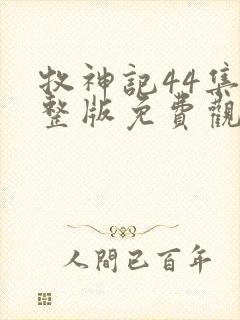 牧神記44集
整版免費觀
人間已百年